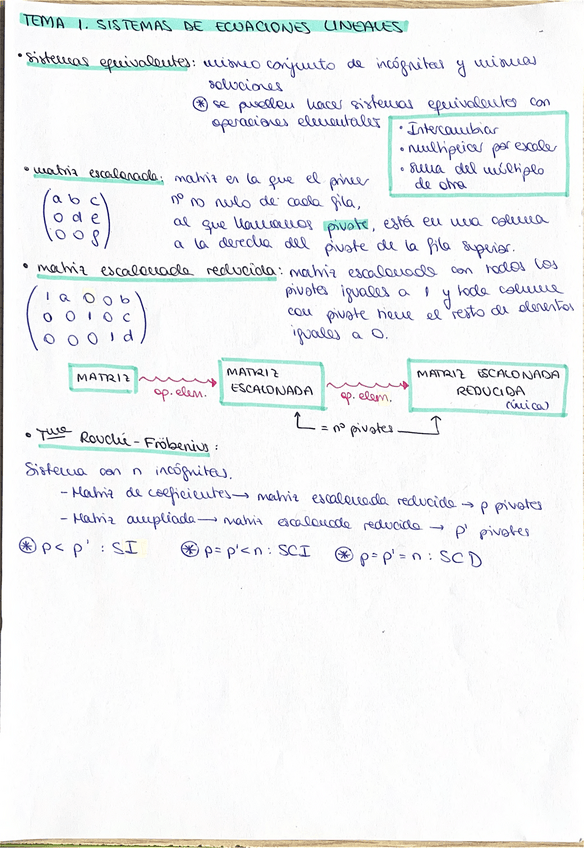 TEMA 1. SISTEMAS DE ECUACIONES LINEALES
• Sistemas equivalentes: mismo conjunto de incógnitas y mismas
soluciones
* se pueden hacer sistemas equivalentes con
operaciones elementales
• Intercambiar
• multiplicar por escalar
• suma del múltiplo
de otra
• matriz escalonada: matriz en la que el primer
nº no nulo de cada fila,
al que llamamos pivote, está en una columna
a la derecha del pivote de la fila superior.
a b c
0 d e
0 0 f
• matriz escalonada reducida: matriz escalonada con todos los
pivotes iguales a 1 y toda columna
con pivote tiene el resto de elementos
iguales a 0.
1 a 0 0 b
0 0 1 0 c
0 0 0 1 d
MATRIZ
op. elem.
MATRIZ
ESCALONADA
op. elem.
MATRIZ ESCALONADA
REDUCIDA
(única)
= nº pivotes
• Tma Rouché-Fröbenius:
Sistema con n incógnitas.
- Matriz de coeficientes → matriz escalonada reducida → p pivotes
- Matriz ampliada → matriz escalonada reducida → p' pivotes
* p < p' : SI * p = p' < n : SCI * p = p' = n : SCD